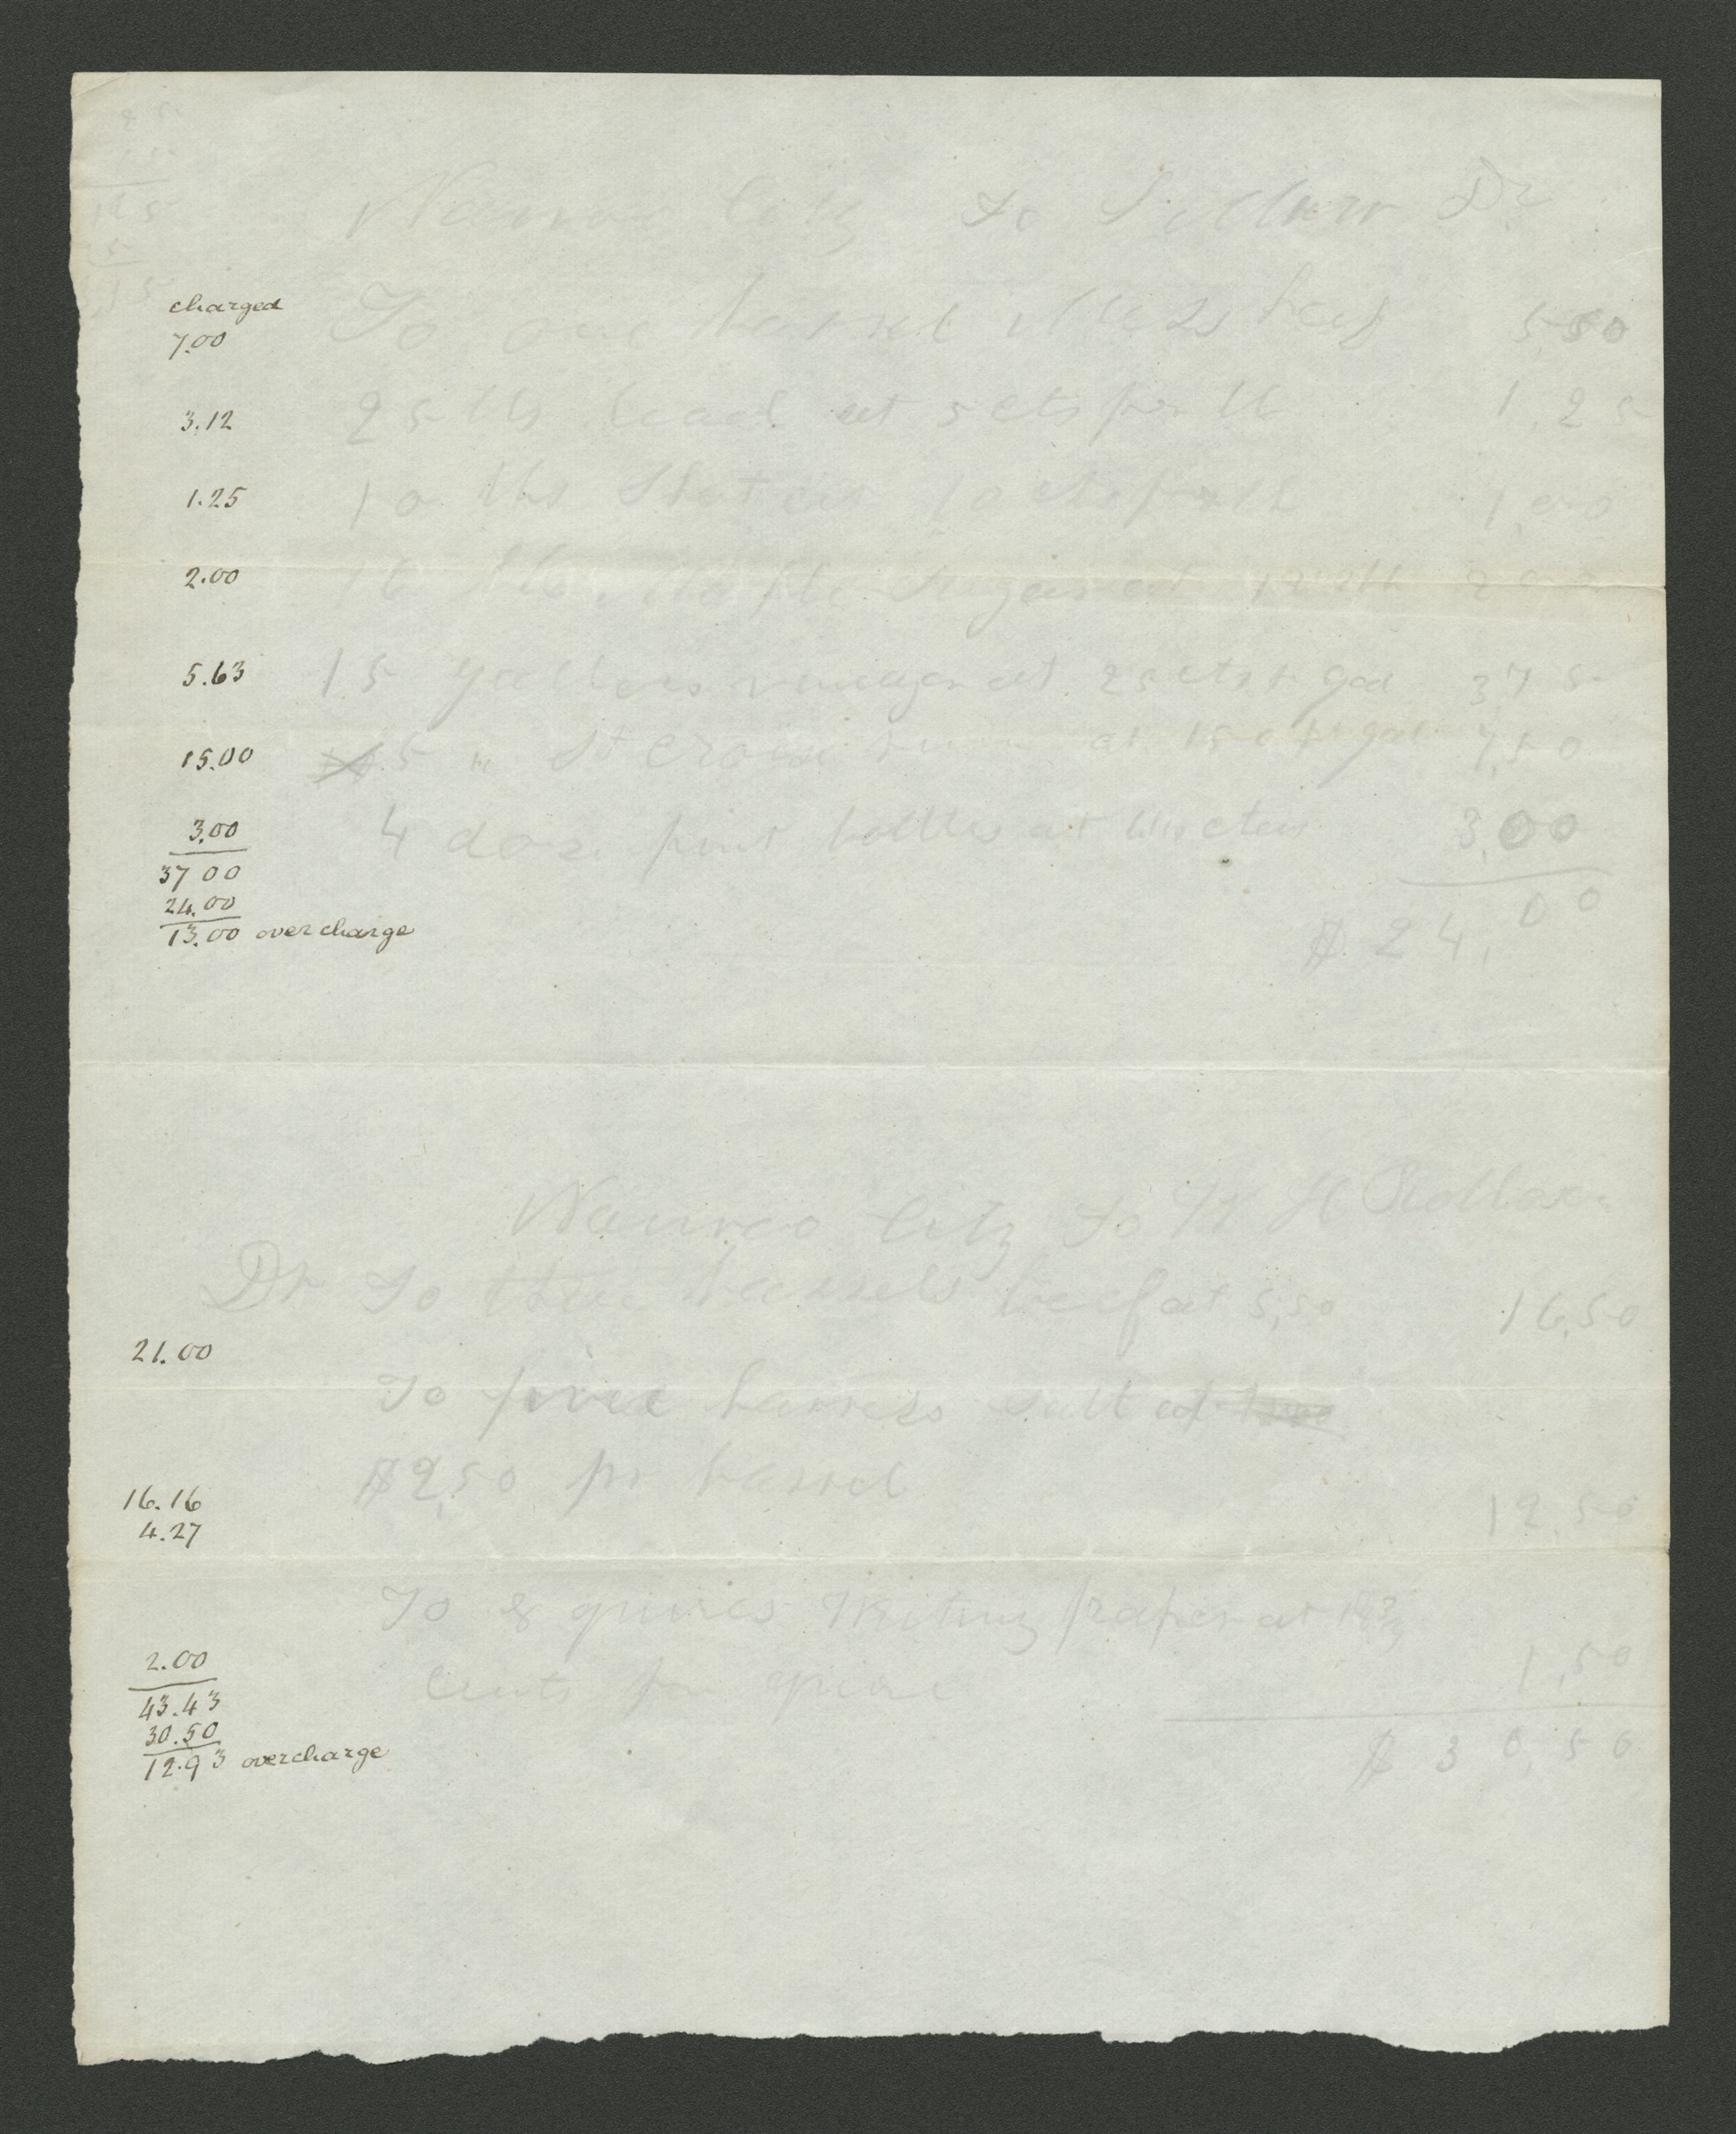 Nauvoo City to Dr
charged
To one barrel Mess beef 5,50
7.00
3.12 25 lbs lead at 5 cts per lb 1,25
1.25 10 lbs Shot at 10 cts per lb 1,00
2.00 16 lbs Maple Sugar at 12 lb 2 00
5.63 15 gallons vinegar at 25 cts pr gal 3,75
15.00 5 " St Croix rum at 150 pr gal 7,50
3.00 4 doz. pint bottles at cts 3,00
37 00 $ 24,00
24.00
13.00 overcharge
Nauvoo City to W H Rollosson
Dr To three barrels beef at 5,50 16,50
21.00
To five barrels salt at
$2,50 pr barrel 12,50
16.16
4.27
To 8 quires Writing paper at 18¾
2.00 Cents per quire 1,50
43.43
30.50 $ 30,50
12.93 overcharge